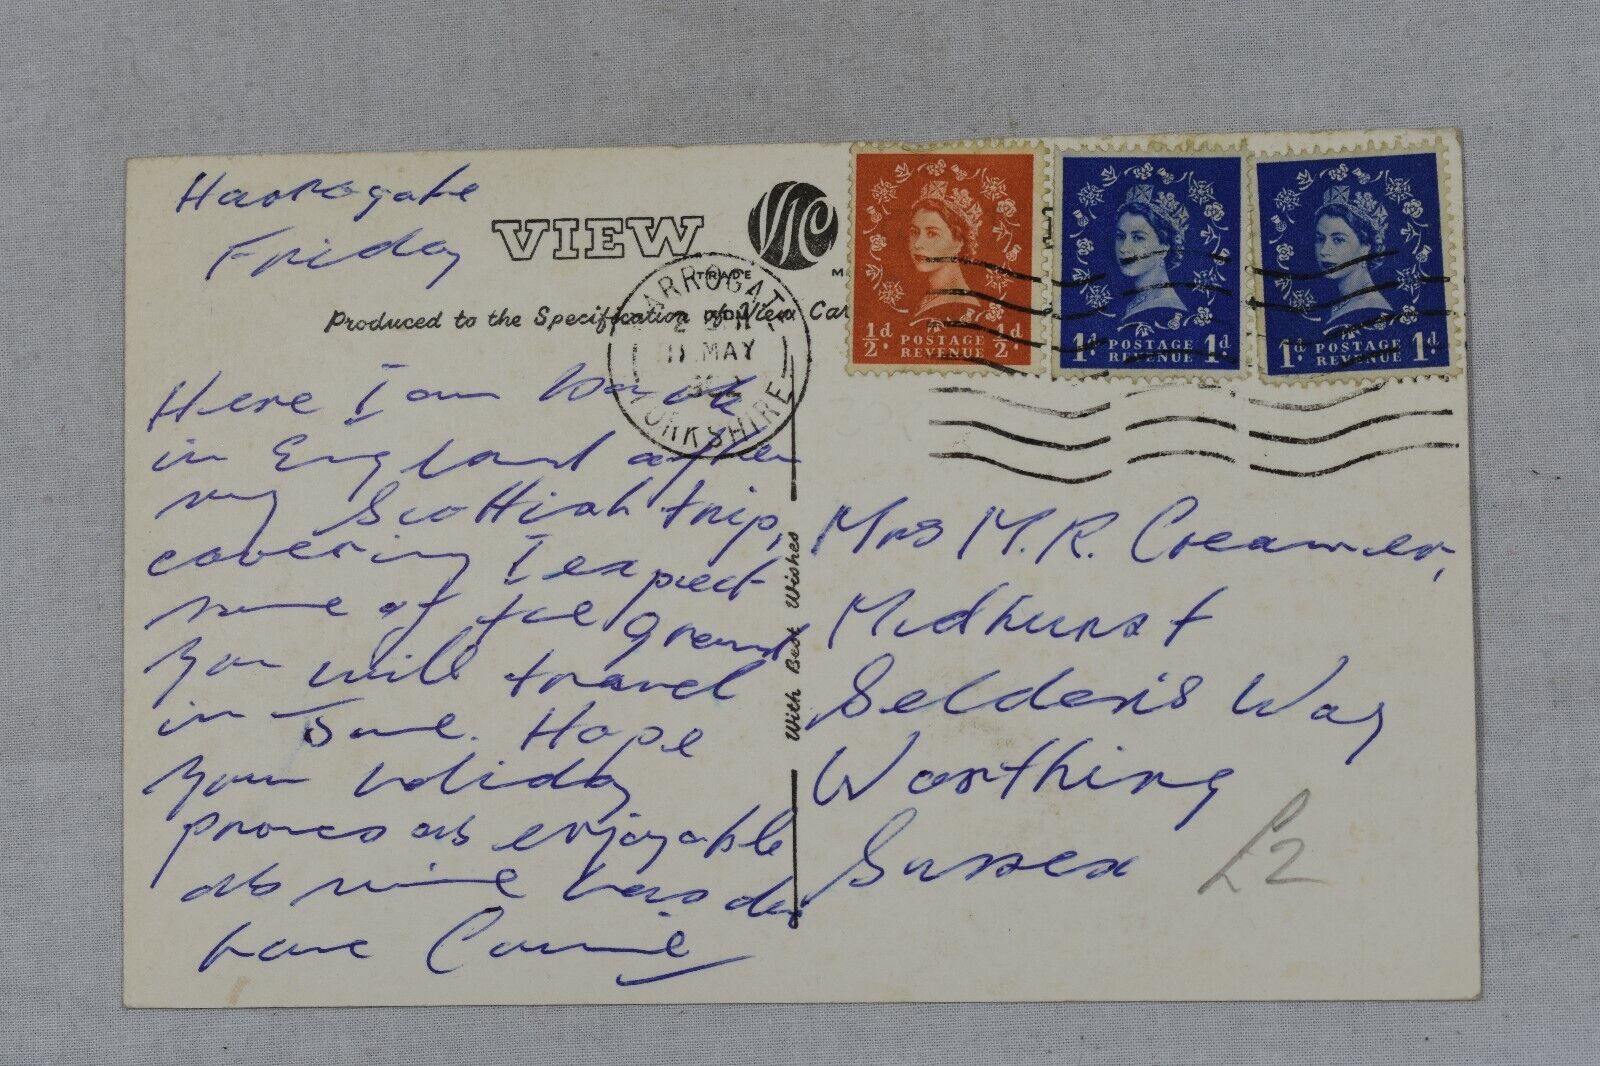 Harrogate
Friday
VIEW
VIC
TRADE
Produced to the Specification of View Car
HARROGATE
11 MAY
YORKSHIRE
½d POSTAGE REVENUE ½d
1d POSTAGE REVENUE 1d
1d POSTAGE REVENUE 1d
Here I am back
in England after
my Scottish trip,
covering I expect
some of the ground
you will travel
in June. Hope
your holiday
proves as enjoyable
as mine has done
Love Connie
With Best Wishes
Mrs M. R. Creamer,
Midhurst
Selden's Way
Worthing
Sussex
£2